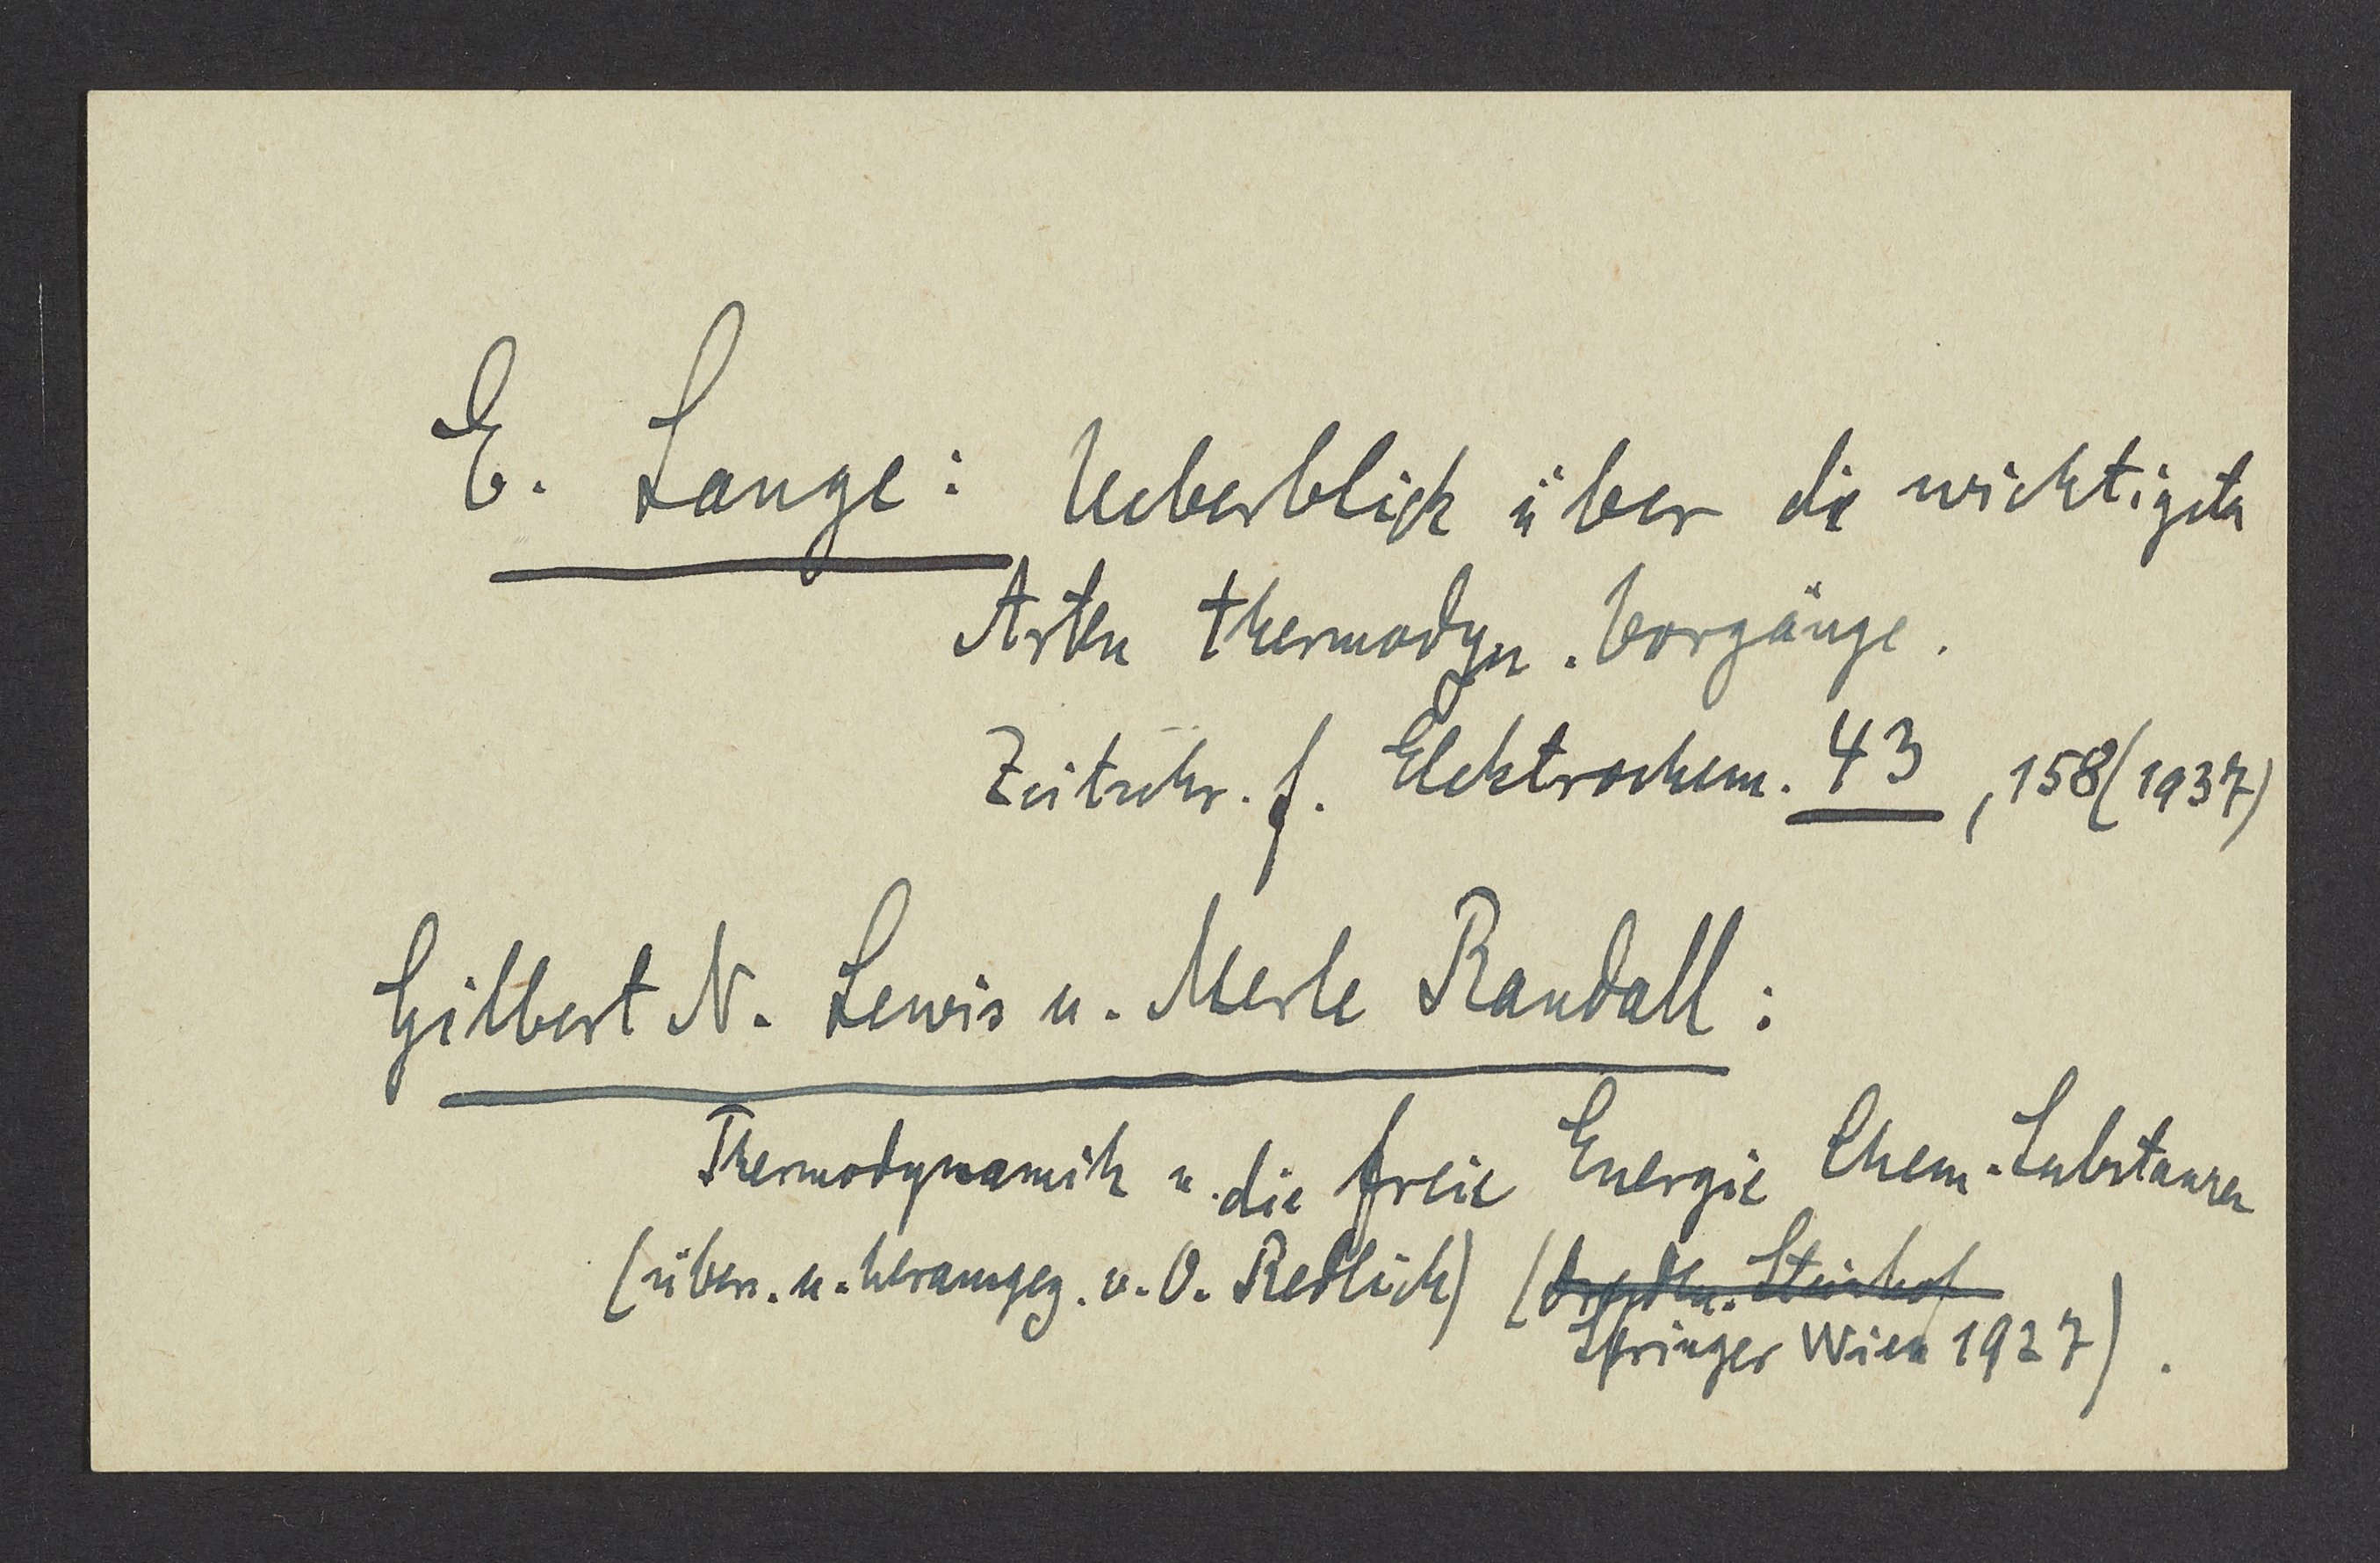 E. Lange: Ueberblick über die wichtigsten
Arten thermodyn. Vorgänge.
Zeitschr. f. Elektrochem. 43, 158 (1937)
Gilbert N. Lewis u. Merle Randall:
Thermodynamik u. die freie Energie Chem. Substanzen
(übers. u. herausgeg. v. O. Redlich) (
Springer Wien 1927).